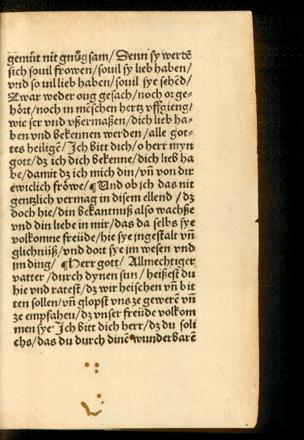 gemüt nit gnůgsam/ Denn sy werdē
sich souil frowen/ souil sy lieb haben/
vnd so uil lieb haben/ souil sye sehēd/
Zwar weder oug gesach/ noch or ge-
hört/ noch in mēschen hertz vffgieng/
wie ser vnd vßermaßen/ dich lieb ha-
ben vnd bekennen werden/ alle got-
tes heiligē/ Ich bitt dich/ o herr myn
gott/ dz ich dich bekenne/ dich lieb ha
be/ damit dz ich mich din/ vn̄ von dir
ewicklich fröwe/ ¶ Und ob ich das nit
gentzlich vermag in disem ellend / dz
doch hie/ din bekantniß also wachße
vnd din liebe in mir/ das da selbs sye
volkomne freüde/ hie sye jngestalt vn̄
glichniß/ vnd dort sye jm wesen vnd
jm ding/ ¶ Herr gott/ Allmechtiger
vatter/ durch dynen sun/ heißest du
hie vnd ratest/ dz wir heischen vn̄ bit
ten sollen/ vn̄ glopst vns ze gewerē vn̄
ze empfahen/ dz vnser freüde volkom
men sye Ich bitt dich herr/ dz du soli
chs/ das du durch dinē wunderbarē